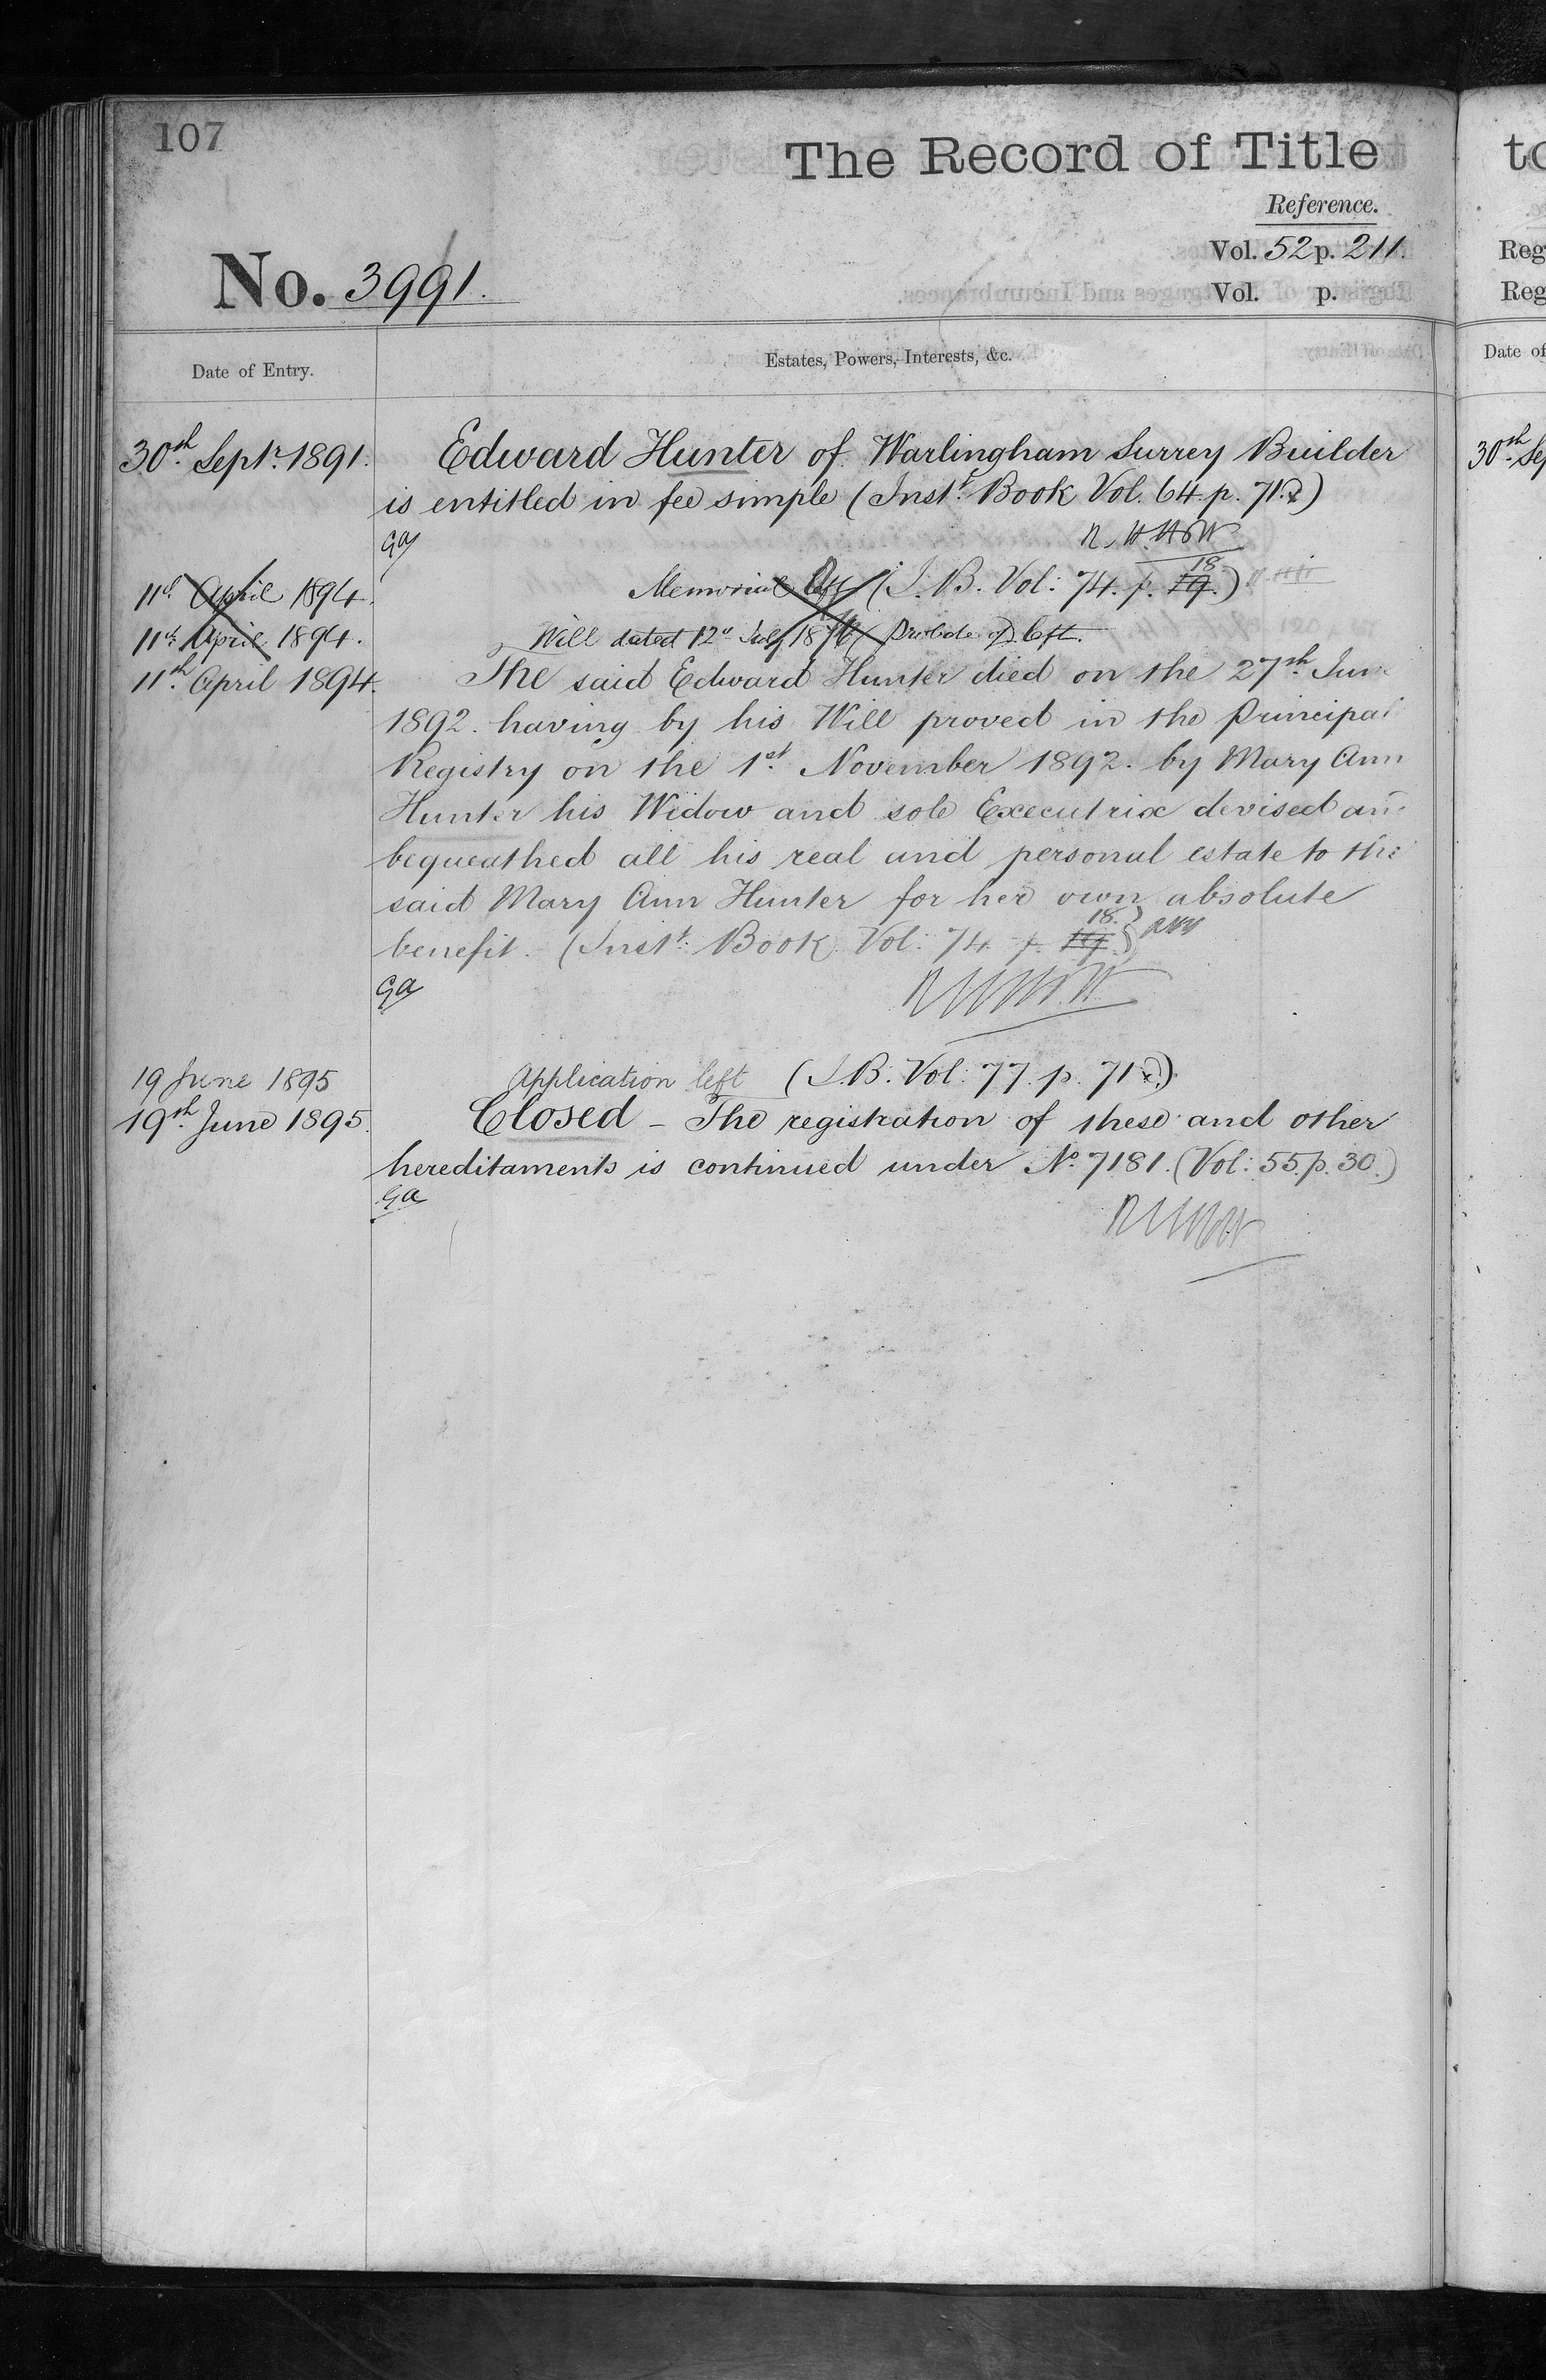 107
The Record of Title
Reference.
Vol. 52 p. 211.
No. 3991.
Vol. p.
Date of Entry.
Estates, Powers, Interests, &c.
30th Septr. 1891. Edward Hunter of Warlingham Surrey Builder
is entitled in fee simple (Instt. Book Vol. 64. p. 71.)
11th April 1894. Memorial left (I. B. Vol: 74. p. 19. 18)
11th April 1894. Will dated 12th July 18 (Probate of) left.
11th April 1894. The said Edward Hunter died on the 27th June
1892 having by his Will proved in the Principal
Registry on the 1st November 1892 by Mary Ann
Hunter his Widow and sole Executrix devised and
bequeathed all his real and personal estate to the
said Mary Ann Hunter for her own absolute
benefit. (Instt. Book Vol: 74 p. 18.)
GA
19 June 1895 Application left (I.B. Vol: 77. p. 71)
19th June 1895. Closed – The registration of these and other
hereditaments is continued under No. 7181. (Vol: 55. p. 30.)
GA
to
Reg
Reg
Date of
30th Se